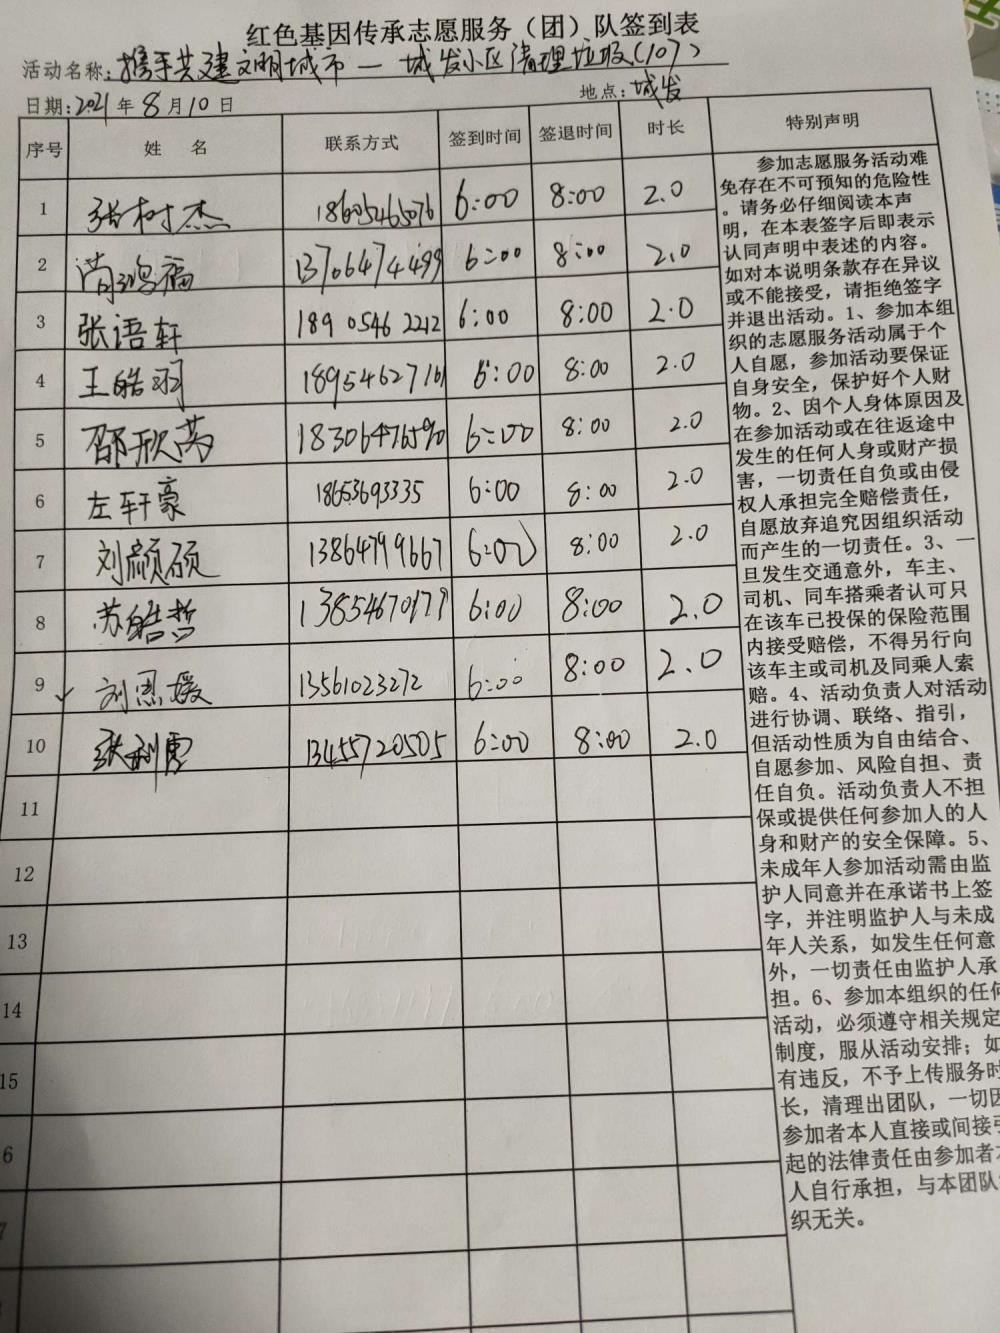 红色基因传承志愿服务（团）队签到表
活动名称：携手共建文明城市 — 城发小区清理垃圾（107）
日期：2021年8月10日 地点：城发
序号 姓 名 联系方式 签到时间 签退时间 时长 特别声明
1 张树杰 18605465076 6:00 8:00 2.0
2 尚鸿福 13706474499 6:00 8:00 2.0
3 张语轩 189 0546 2212 6:00 8:00 2.0
4 王皓羽 18954627161 6:00 8:00 2.0
5 邵欣芮 18306476590 6:00 8:00 2.0
6 左轩豪 18653693335 6:00 8:00 2.0
7 刘颜硕 13864799667 6:00 8:00 2.0
8 苏皓哲 13854670179 6:00 8:00 2.0
9 刘思媛 13561023272 6:00 8:00 2.0
10 张利勇 13455720505 6:00 8:00 2.0
11
12
13
14
15
6
7
参加志愿服务活动难
免存在不可预知的危险性
。请务必仔细阅读本声
明，在本表签字后即表示
认同声明中表述的内容。
如对本说明条款存在异议
或不能接受，请拒绝签字
并退出活动。1、参加本组
织的志愿服务活动属于个
人自愿，参加活动要保证
自身安全，保护好个人财
物。2、因个人身体原因及
在参加活动或在往返途中
发生的任何人身或财产损
害，一切责任自负或由侵
权人承担完全赔偿责任，
自愿放弃追究因组织活动
而产生的一切责任。3、一
旦发生交通意外，车主、
司机、同车搭乘者认可只
在该车已投保的保险范围
内接受赔偿，不得另行向
该车主或司机及同乘人索
赔。4、活动负责人对活动
进行协调、联络、指引，
但活动性质为自由结合、
自愿参加、风险自担、责
任自负。活动负责人不担
保或提供任何参加人的人
身和财产的安全保障。5、
未成年人参加活动需由监
护人同意并在承诺书上签
字，并注明监护人与未成
年人关系，如发生任何意
外，一切责任由监护人承
担。6、参加本组织的任何
活动，必须遵守相关规定
制度，服从活动安排；如
有违反，不予上传服务时
长，清理出团队，一切因
参加者本人直接或间接引
起的法律责任由参加者本
人自行承担，与本团队组
织无关。